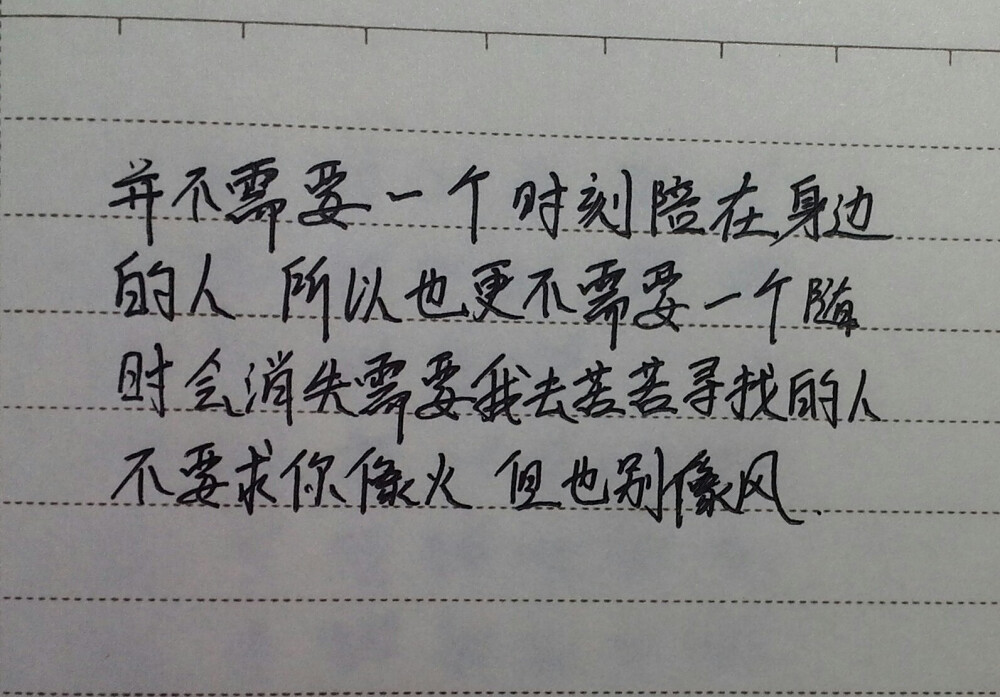 并不需要一个时刻陪在身边
的人 所以也更不需要一个随
时会消失需要我去苦苦寻找的人
不要求你像火 但也别像风.